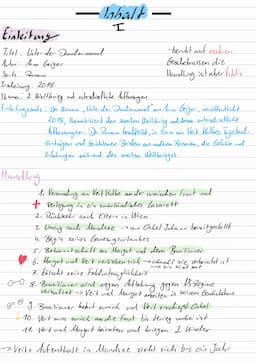 Inhalt
I
Einleitung
Titel: Unter der Drachenwand
Autor: Arno Geiger
Sorte: Roman
Erscheinung: 2018
Thema: 2. Weltkrieg und
- beruht auf wahren
Geschehnissen die
Handlung ist aber fiktiv
Einleitungssatz: Der Roman „Unter der Drachenwand" von Arno Geiger, veröffentlicht
2018, thematisiert den zweiten Weltkrieg und
Der Roman in Form von Veit Kolbes Tagebuch-
einträgen und Briefen anderer Personen, die Gefühle und
Erfahrungen während des zweiten Weltkrieges.
Handlung
1. Verwundung von Veit Kolbe an der Front und
Verlegung in ein Lazarett
2. Rückkehr nach Eltern in Wien
3. Umzug nach Mondsee → von Onkel Johann bereitgestellt
4. Beginn seines Genesungsurlaubes
5. Bekanntschaft mit Margot und dem Brasilianer
6. Margot und Veit verlieben sich → obwohl sie verheiratet ist
7. Fälscht seine Fronttauglichkeit
8. Brasilianer wird wegen Ablehnung gegen NS-Regime
verhaftet → Veit und Margot arbeiten in seinem Gewächshaus
9. Brasilianer kehrt zurück und Veit Onkel
10. Veit muss zurück an die Front bis
11. Veit und Margot heiraten und kriegen 2 Kinder
→ Veits Aufenthalt in Mondsee zieht sich bis ein Jahr